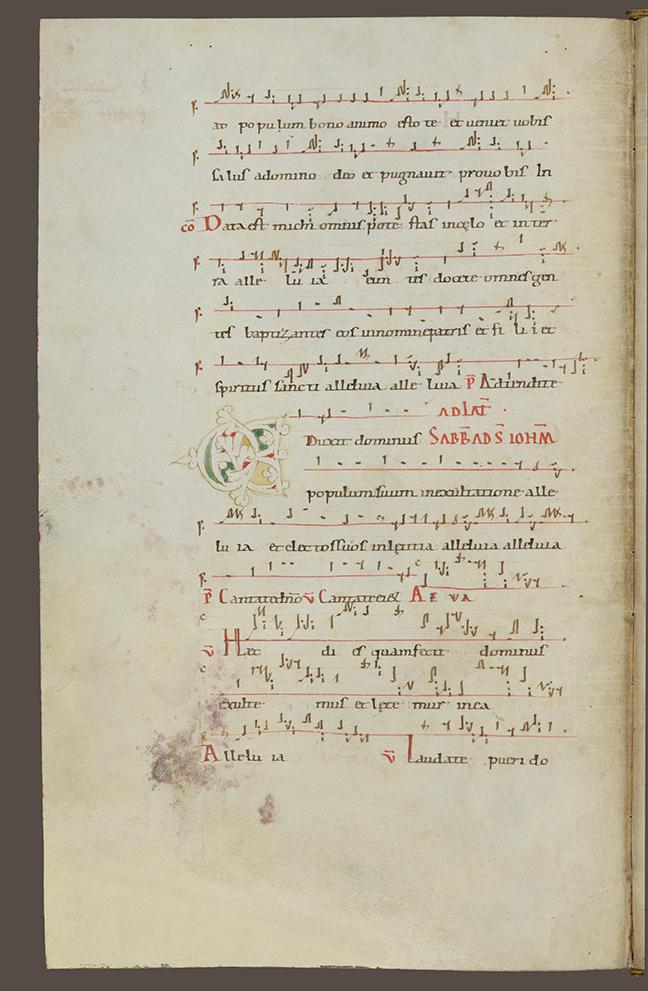 ao populum bono animo estote et veniet vobis
salus a domino deo et pugnavit pro vobis In
cō Data est michi omnis potestas in cęlo et in ter
ra alle lu ia eun tes docete omnes gen
tes baptizantes eos in nomine patris et fi li i et
spiritus sancti alleluia alle luia P Adtendite
AD LAT̄
Duxit dominus SABB̄ AD S̄ IOHM̄
populum suum in exultatione alle
lu ia et electos suos in lętitia alleluia alleluia
P Cantate dn̄o V̄ Cantate ei A E V A
V̄ Hec di es quam fecit dominus
exulte mus et lęte mur in ea
Allelu ia V̄ Laudate pueri do